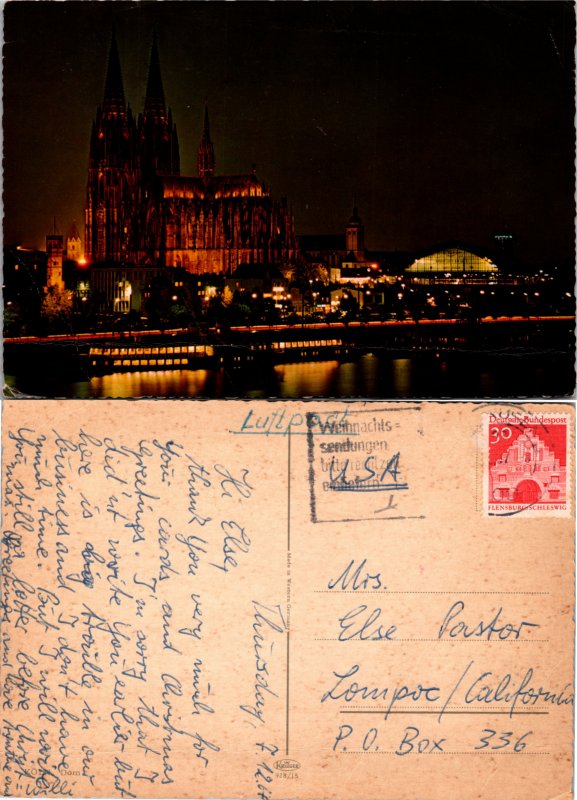 Luftpost
Weihnachts=
sendungen
USA
1
Deutsche Bundespost
30
FLENSBURG/SCHLESWIG
Mrs.
Else Pastor
Lompoc/California
P. O. Box 336
Made in Western Germany
Krüger
928/15
Dom
Thursday, 7.12.67
Hi Elsey,
thank you very much for
you cards and Christmas
greetings. I'm sorry that I
did not write you earlier but
here is big trouble in our
bussines and I don't have
much time. But I will write
You still a letter before Christ-
mas. Greetings and love
Willi